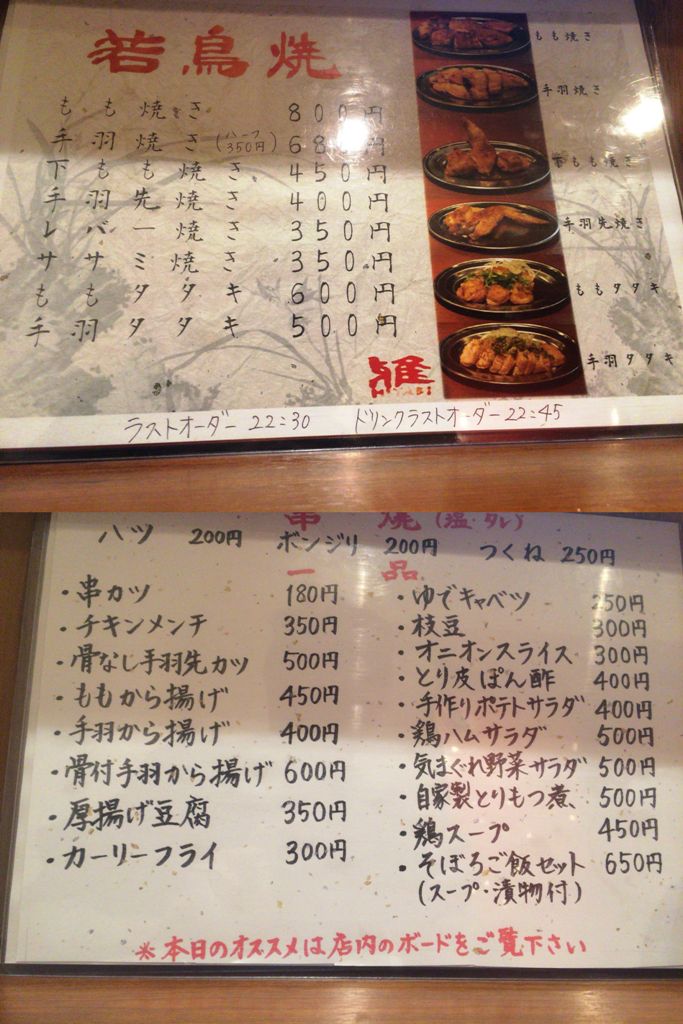 若鳥焼
もも焼き 800円
手羽焼き(ハーフ350円) 680円
下もも焼き 450円
手羽先焼き 400円
レバー焼き 350円
ササミ焼き 350円
ももタタキ 600円
手羽タタキ 500円
もも焼き
手羽焼き
もも焼き
手羽先焼き
ももタタキ
手羽タタキ
雅
MIYABI
ラストオーダー 22:30 ドリンクラストオーダー 22:45
串焼(塩・タレ)
ハツ 200円 ボンジリ 200円 つくね 250円
一品
・串カツ 180円
・チキンメンチ 350円
・骨なし手羽先カツ 500円
・ももから揚げ 450円
・手羽から揚げ 400円
・骨付手羽から揚げ 600円
・厚揚げ豆腐 350円
・カーリーフライ 300円
・ゆでキャベツ 250円
・枝豆 300円
・オニオンスライス 300円
・とり皮ぽん酢 400円
・手作りポテトサラダ 400円
・鶏ハムサラダ 500円
・気まぐれ野菜サラダ 500円
・自家製とりもつ煮、 500円
・鶏スープ 450円
・そぼろご飯セット 650円
(スープ・漬物付)
※本日のオススメは店内のボードをご覧下さい